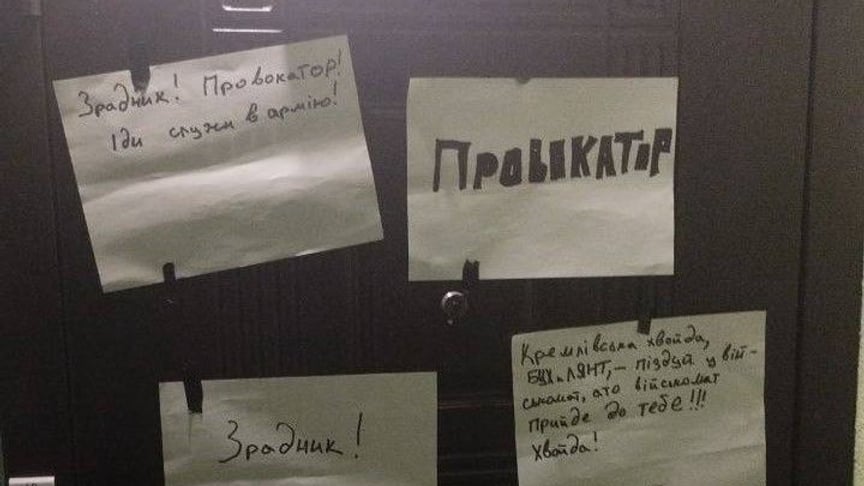 Зрадник! Провокатор!
Іди служи в армію!
ПРОВОКАТОР
Зрадник!
Кремлівська хвойда,
- піздуй у вій-
ськомат, ато військомат
прийде до тебе!!!
Хвойда!